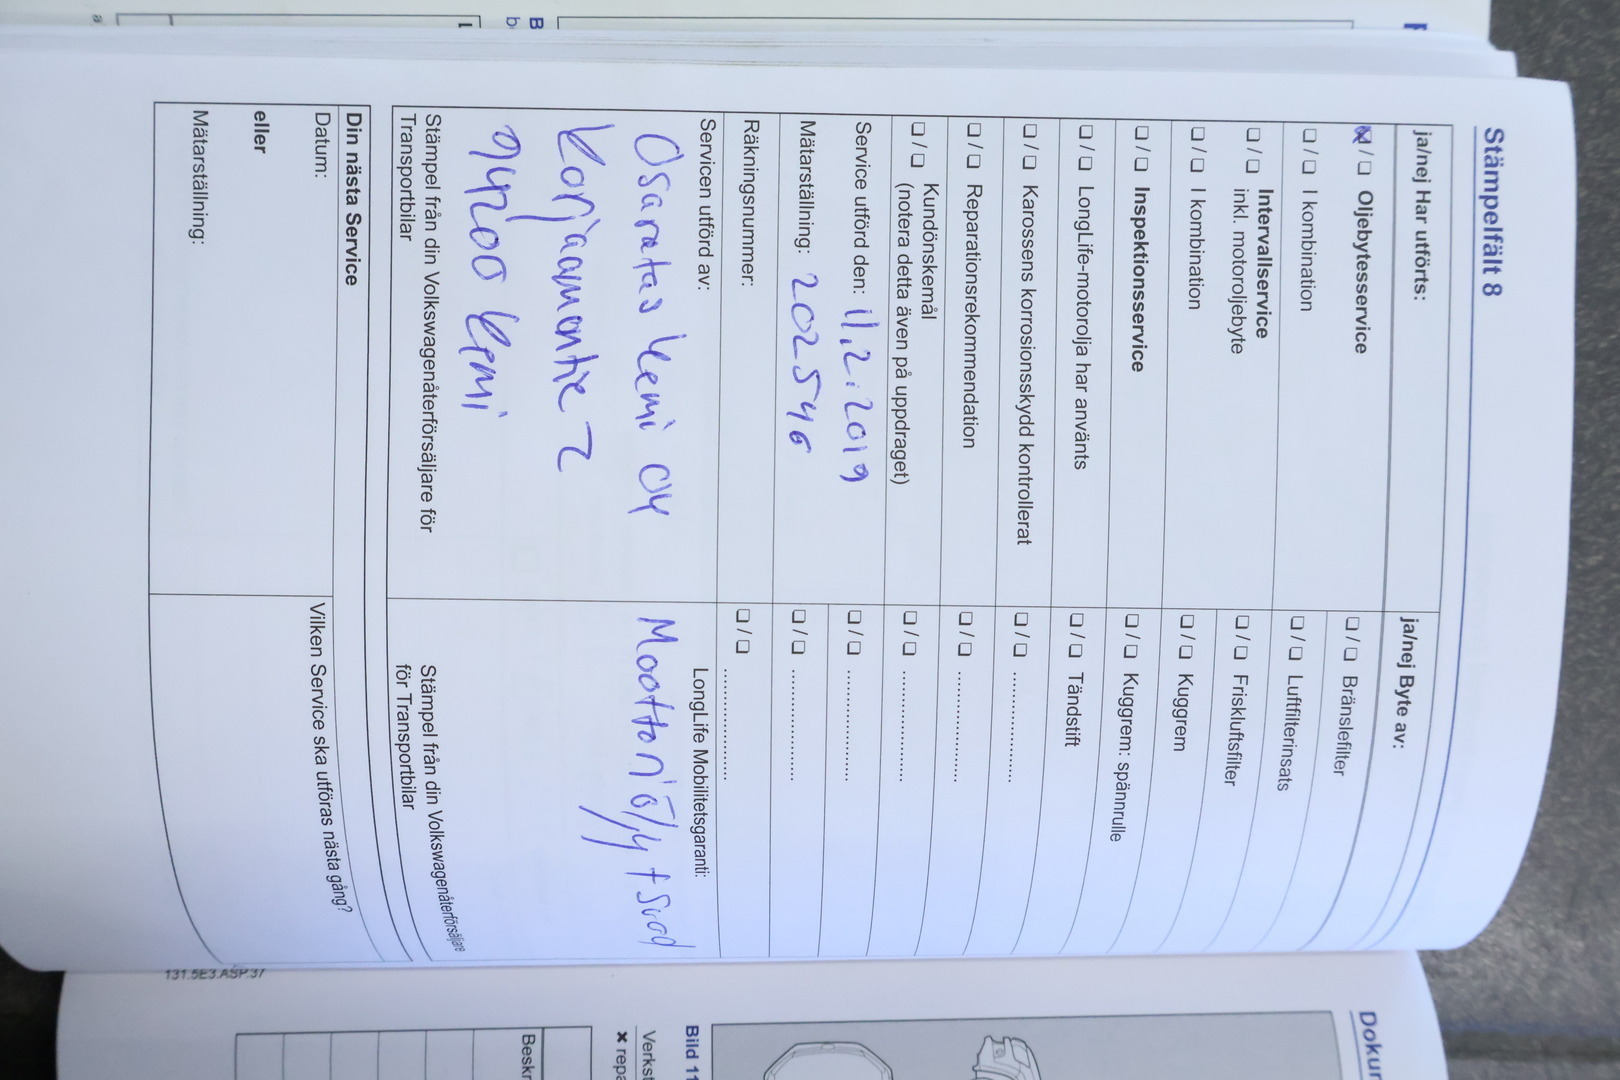 Stämpelfält 8
ja/nej Har utförts:
☒ / ❏ Oljebytesservice
❏ / ❏ I kombination
❏ / ❏ Intervallservice
inkl. motoroljebyte
❏ / ❏ I kombination
❏ / ❏ Inspektionsservice
❏ / ❏ LongLife-motorolja har använts
❏ / ❏ Karossens korrosionsskydd kontrollerat
❏ / ❏ Reparationsrekommendation
❏ / ❏ Kundönskemål
(notera detta även på uppdraget)
Service utförd den: 11.2.2019
Mätarställning: 202546
Räkningsnummer:
ja/nej Byte av:
❏ / ❏ Bränslefilter
❏ / ❏ Luftfilterinsats
❏ / ❏ Friskluftsfilter
❏ / ❏ Kuggrem
❏ / ❏ Kuggrem: spännrulle
❏ / ❏ Tändstift
❏ / ❏ ...................
❏ / ❏ ...................
❏ / ❏ ...................
❏ / ❏ ...................
❏ / ❏ ...................
❏ / ❏ ...................
Servicen utförd av:
Osaratas Kemi oy
Korjaamontie 2
94200 Kemi
Stämpel från din Volkswagenåterförsäljare för
Transportbilar
LongLife Mobilitetsgaranti:
Moottoriöljy + suod
Stämpel från din Volkswagenåterförsäljare
för Transportbilar
Din nästa Service
Datum:
eller
Mätarställning:
Vilken Service ska utföras nästa gång?
131.5E3.ASP.37
Dokur
Bild 11
Verkst
✖ repa
Beskr